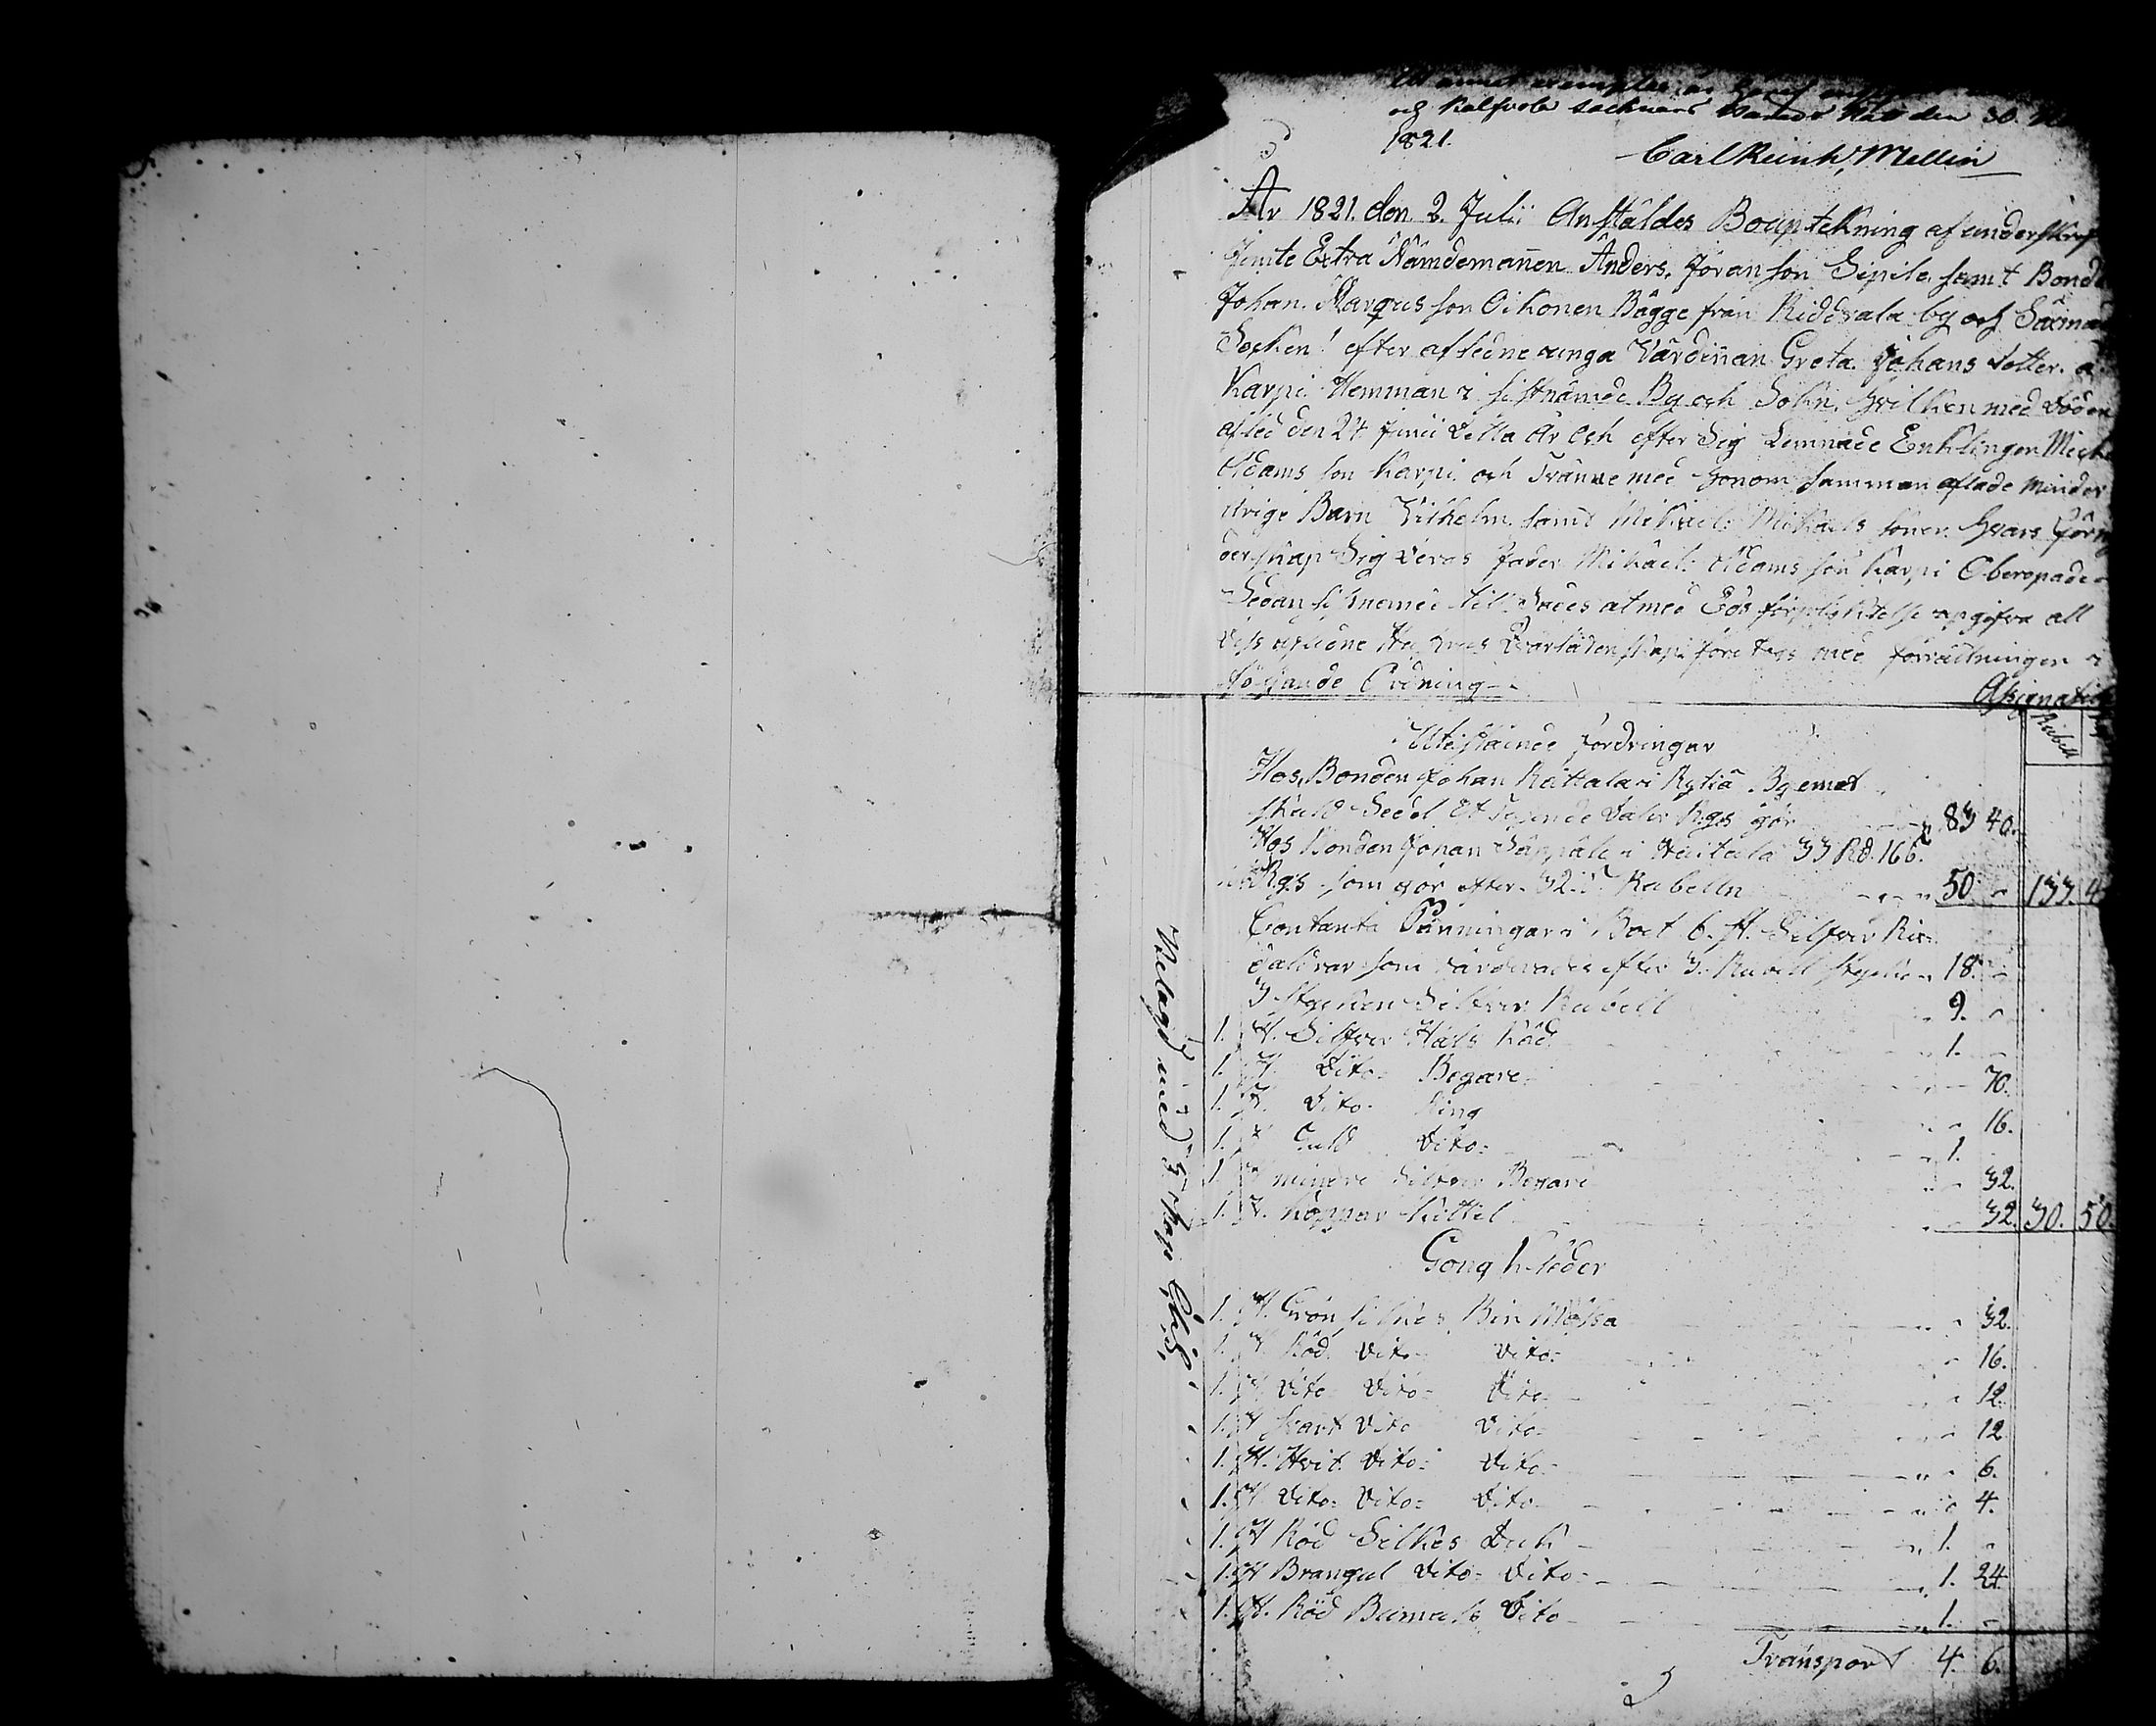 och Kalfvola Socknars den 30.
1821.
Carl Reinh, Mellin
År 1821. den 2. Julii Anstäldes Bouptekning af underskref
Jemte Extra Nämdemannen Anders. Jöran son Sipile. samt Bonde
Johan. Margus son Oikonen Bägge från Riddvala by och
Socken! efter afledne unga Värdinnan Greta. Johans dotter. a
Karpi Hemman i sistnämde By och Sokn. Hvilken med Döden
afled den 24 Junii detta År Och efter Sig Lemnade Enklingen Mick
Adams son Karpi och Tvänne med Honom samman aflade Minder
årige Barn Vilhelm. samt Mikael: Mikaels söner. Hvars Förm
derskap Sig deras Fader Mikael: Adams son Karpi Oberopade
Sedan tillsades at med Eds förpligtelse upgifva all
afledne qvarlåtenskap. före togs med förrättningen i
följande Ordning
Assignatio
Rubell
Utestående fordringar
Hos, Bonden Johan Rättala i Bgemot
skuld Sedel Et Tusende daler Rgs gör 83 40.
Hos Bonden Johan i 33 Rd. 16 s.
Rgs. som gör efter. 32. Rubelln 50 - 133. 4
Contanta Pänningar i Boet 6. st. Silfver Rix
daldrar som värderades efter 3. Rubell stycke 18. -
3 stycken Silfver Rubell 9. -
1. st. Silfver Hals Käd 1. -
1. st. Dito- Begare. 70.
1. st. Dito- Ring 16.
1. st Guld Dito- 1.
1. st mindre Silfver Begare 32.
1. st. Koppar Kettel 32. 30. 50.
Gong Kläder
1. st. Grön silkes Bin Mössa 32.
1. st Röd. Dito- Dito- 16.
1. st Dito Dito- Dito- 12.
1. st Svart Dito Dito- 12
1. st. Hvit. Dito- Dito- 6.
1. st Dito- Dito- Dito- 4.
1. st Röd Silkes Duk 1. -
1. st Brangul Dito- Dito- 1. 24.
1. st. Röd Bumuls Dito 1. -
Transport 4. 6.
Belagd med 3 Kop.